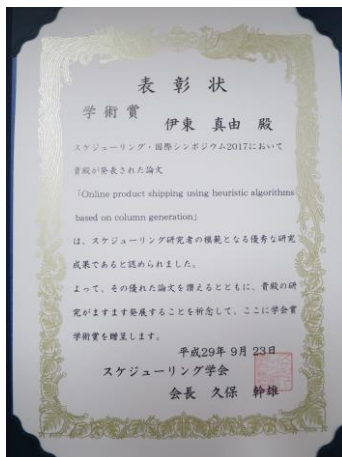 表彰状
学術賞
伊東 真由 殿
スケジューリング・国際シンポジウム2017において
貴殿が発表された論文
「Online product shipping using heuristic algorithms
based on column generation」
は、スケジューリング研究者の模範となる優秀な研究
成果であると認められました。
よって、その優れた論文を讃えるとともに、貴殿の研
究がますます発展することを祈念して、ここに学会賞
学術賞を贈呈します。
平成29年 9月 23日
スケジューリング学会
会長 久保 幹雄